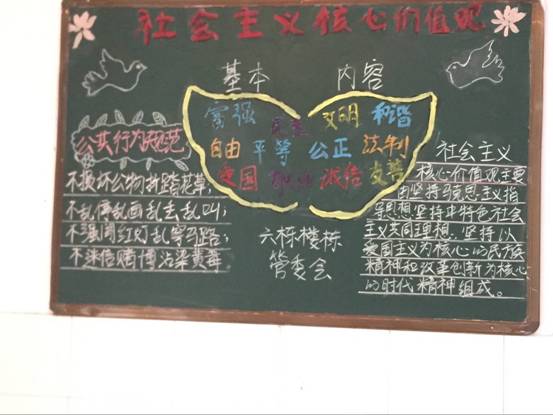 社会主义核心价值观
基本 内容
富强 民主 文明 和谐
自由 平等 公正 法制
爱国 敬业 诚信 友善
公共行为规范
不损坏公物折踏花草；
不乱停乱画乱丢乱叫；
不强闯红灯乱穿马路；
不迷信赌博沾染黄毒
六栋楼栋
管委会
社会主义
核心价值观主要
由坚持马克思主义指
导思想.坚持中特色社会
主义共同理想，坚持以
爱国主义为核心的民族
精神和改革创新为核心
的时代精神组成。